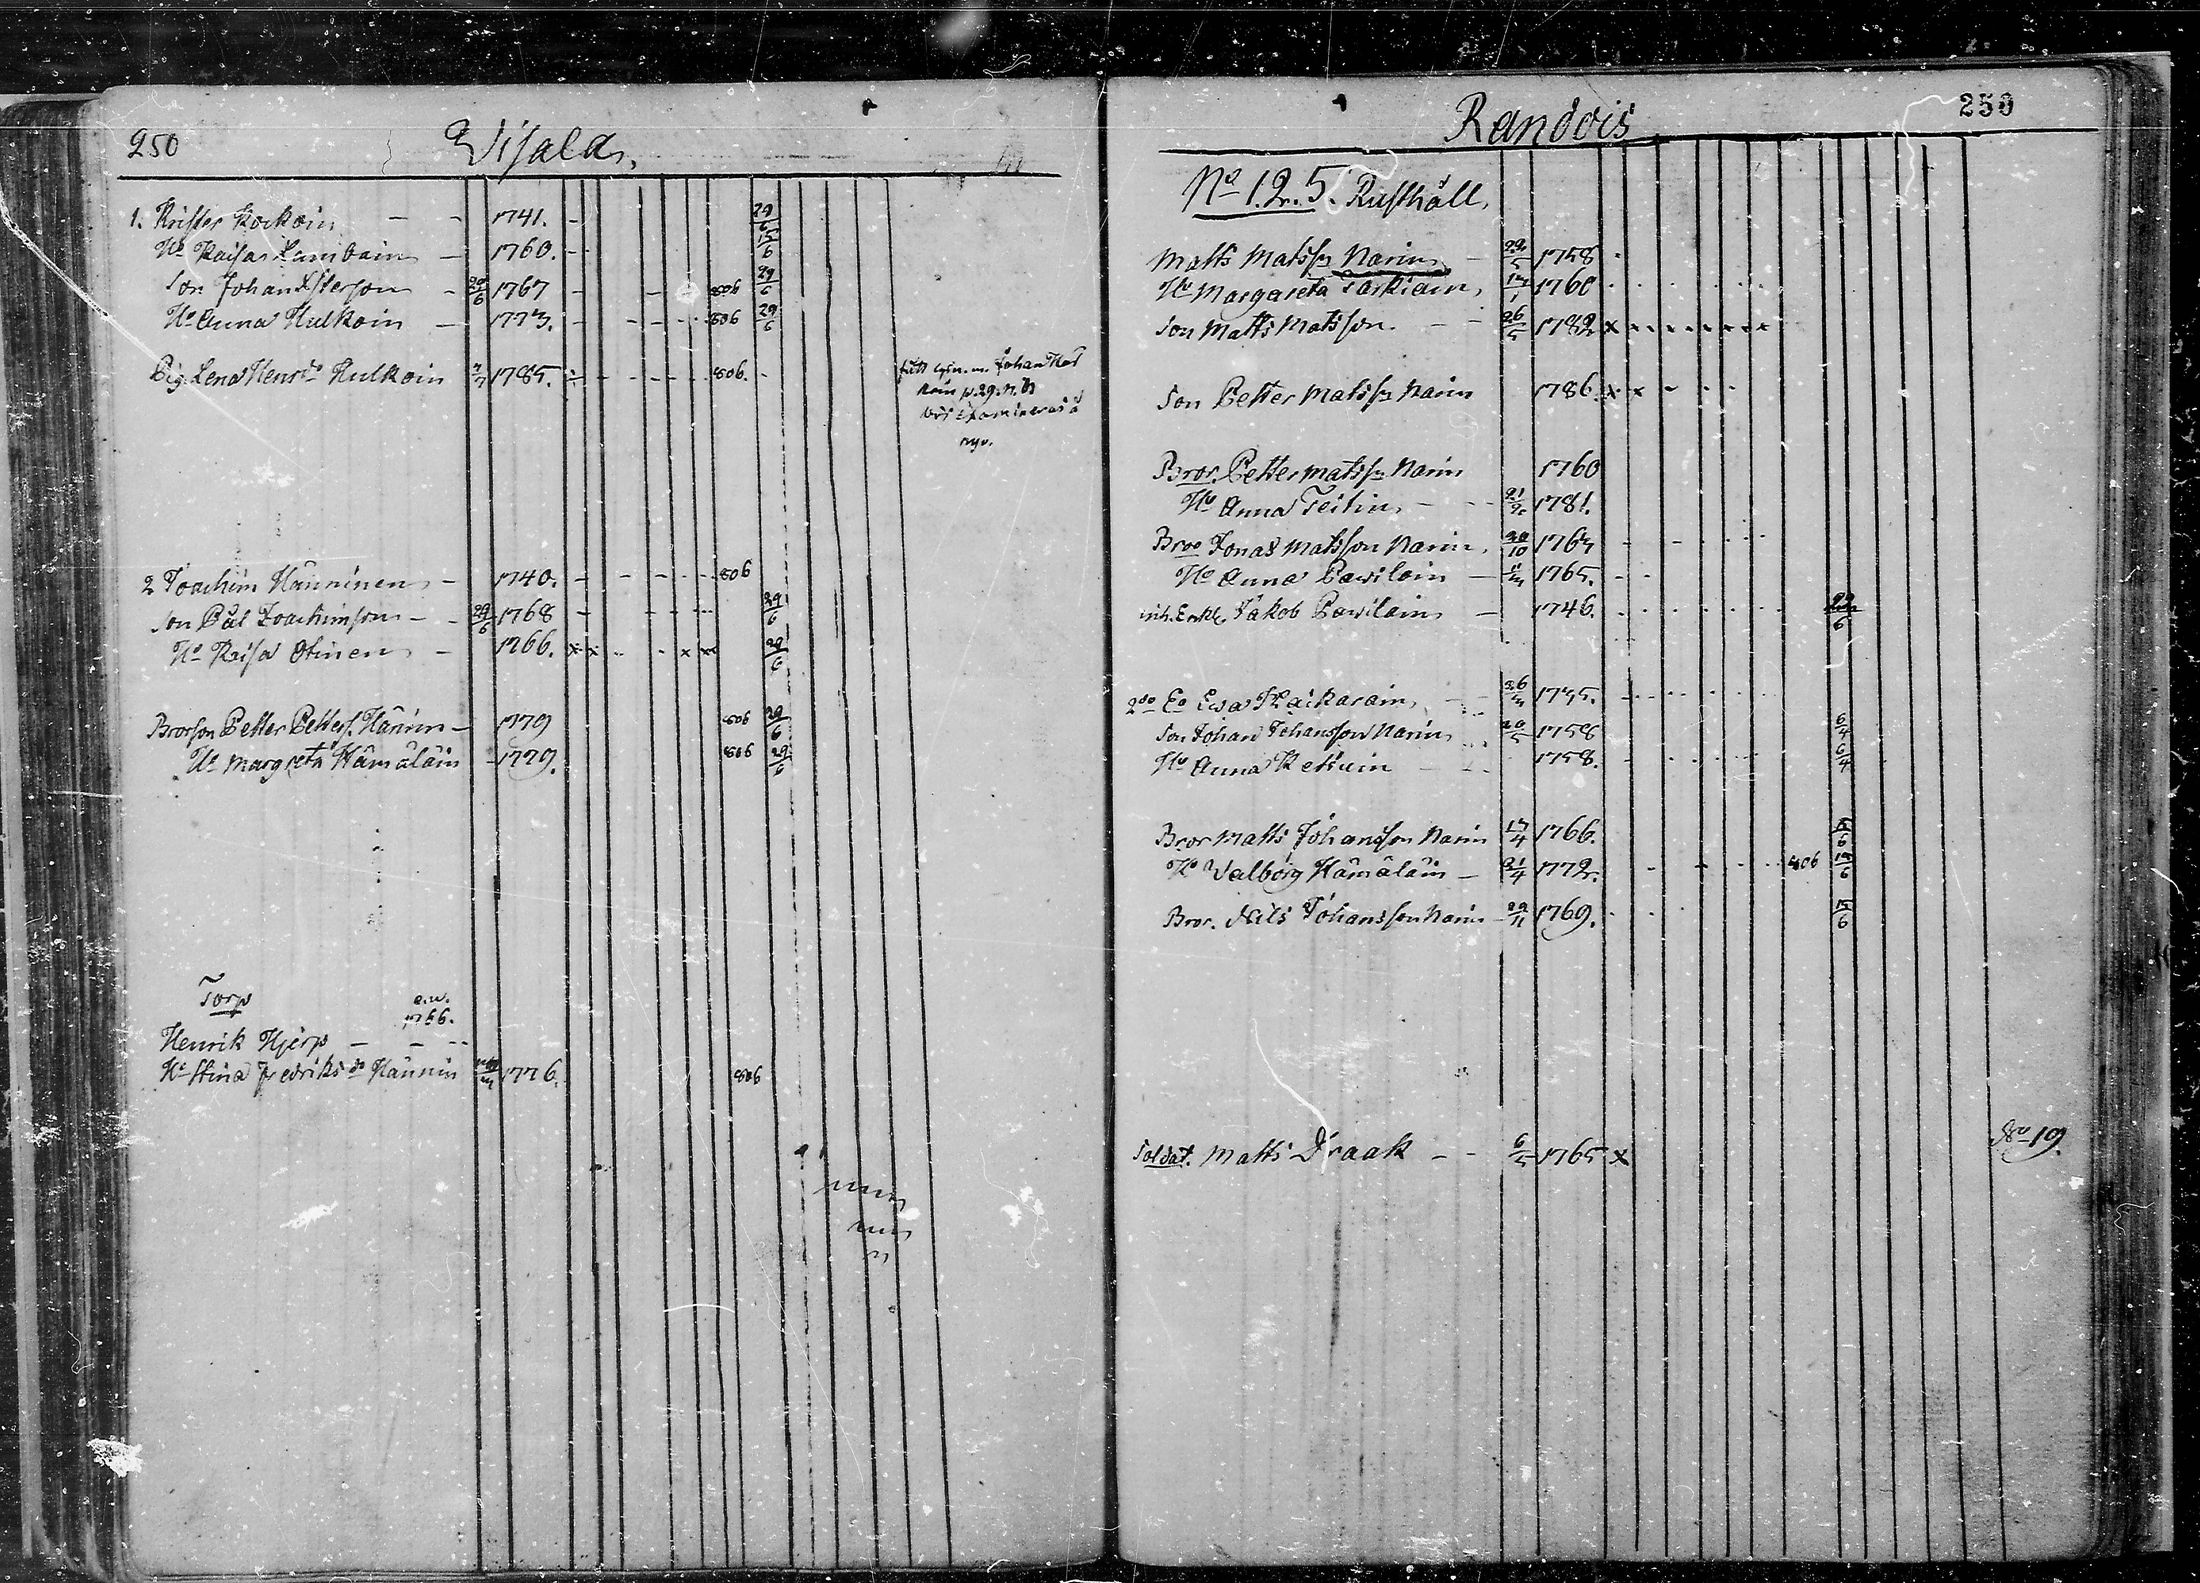 250 Wisala.
1. Krister Kockoin - - 1741. - 29/6
Hu Kaisa Lambain - 1760. - - 15/6
Son Johan Isterson - 29/6 1767 - - 806 29/6
Hu Anna Hulkoin - 1773. - - - - 806 29/6
Pig. Lena Henrsdr Hulkoin 7/7 1785. - - - - - 806. -
Johan
p. 29.
examineras å
nyo.
2 Joachim Hänninen - 1740. - - - - - 806
Son Pål Joachimson - - 29/6 1768 - - - - 29/6
Hu Kaisa Otinen - 1766. x x - - x x 29/6
Brorson Petter Petters. Hännin - 1779 806 29/6
Hu Margreta Hämäläin - 1779. 806 29/6
Torp
e.u.
1766.
Henrik Hjerp - - -
Hu Stina Fredriksdr Hännin 1776. 806
250
Randois
No 1. 2. 5. Rusthåll,
Matts Matsson Narin - 1758 -
Hu Margareta Tarkiain, 1760
Son Matts Matsson. - - 26/5 1782 x x x x x x x x
Son Petter Matsson Narin 1786. x x - - -
Bror. Petter Matsson Narin 1760
Hu Anna Teitin, - - 21/2 1781.
Bror Jonas Matsson Narin, 20/10 1763 - - - - -
Hu Anna Pawilain - 1765. - -
inh. Enkl. Jakob Pawilain - 1746. 29/6
2do Eo Ewa Haikarain, - - 1735.
Son Johan Johansson Narin 20/5 1758 6/4
Hu Anna Ketuin - - - 1758. 6/4
Bror Matts Johansson Narin 17/4 1766. 15/6
Hu Walborg Hämäläin - 21/4 1772. - - - - 806 15/6
Bror. Nils Johansson Narin - 29/11 1769. 15/6
Soldat. Matts Draak - - 6/5 1765. x No 19.